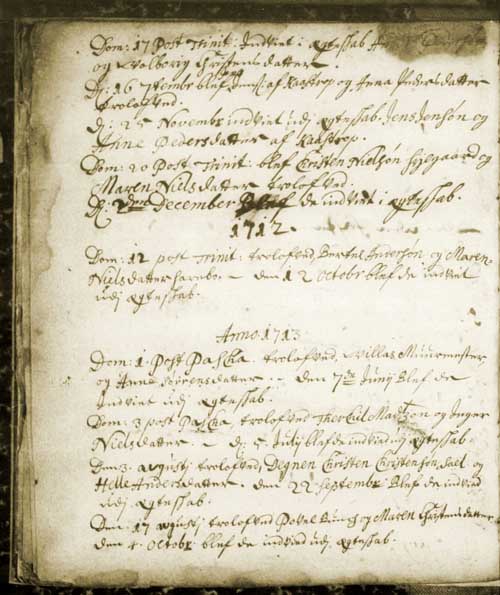 Dom: 17 Post Trinit: Indviet i Ægteskab
og Wolborg Christensdatter.
D: 16 blef af Kaastrop og Anna Pedersdatter
troloved.
d: 25 Novembr indviet udj Ægteskab. Jens Jensøn og
Anne Pedersdatter af Kaastrop.
Dom: 20 Post Trinit: blef Christen Nielsøn og
Maren Nielsdatter trolofved.
D: 2den December Blef de indviet i Ægteskab.
1712.
Dom: 12 post Trinit: trolofved, Bertel Andersøn og Maren
Nielsdatter den 12 Octobr blef de indviet
udj Ægteskab.
Anno. 1713
Dom: 1. Post Pascha. trolofved, Villas Muurmester
og Anne Sørensdatter. - den 7de Junij Blef de
Indviet udj Ægteskab.
Dom: 3 post Pascha trolofved Therkil Madsøn og Inger
Nielsdatter - d: 5 Julij blef de indvied udj Ægteskab.
Den 3. Augustj trolofved, Degnen Christen Christensøn og
Helle Andersdatter. den 22 Septembr Blef de indvied
udj Ægteskab.
Den 17 Augustj trolofved Povel og Maren Christensdatter
den 4. Octobr blef de indvied udj Ægteskab.